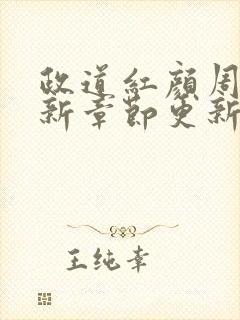 政道紅顏周
新章節更新
王純幸